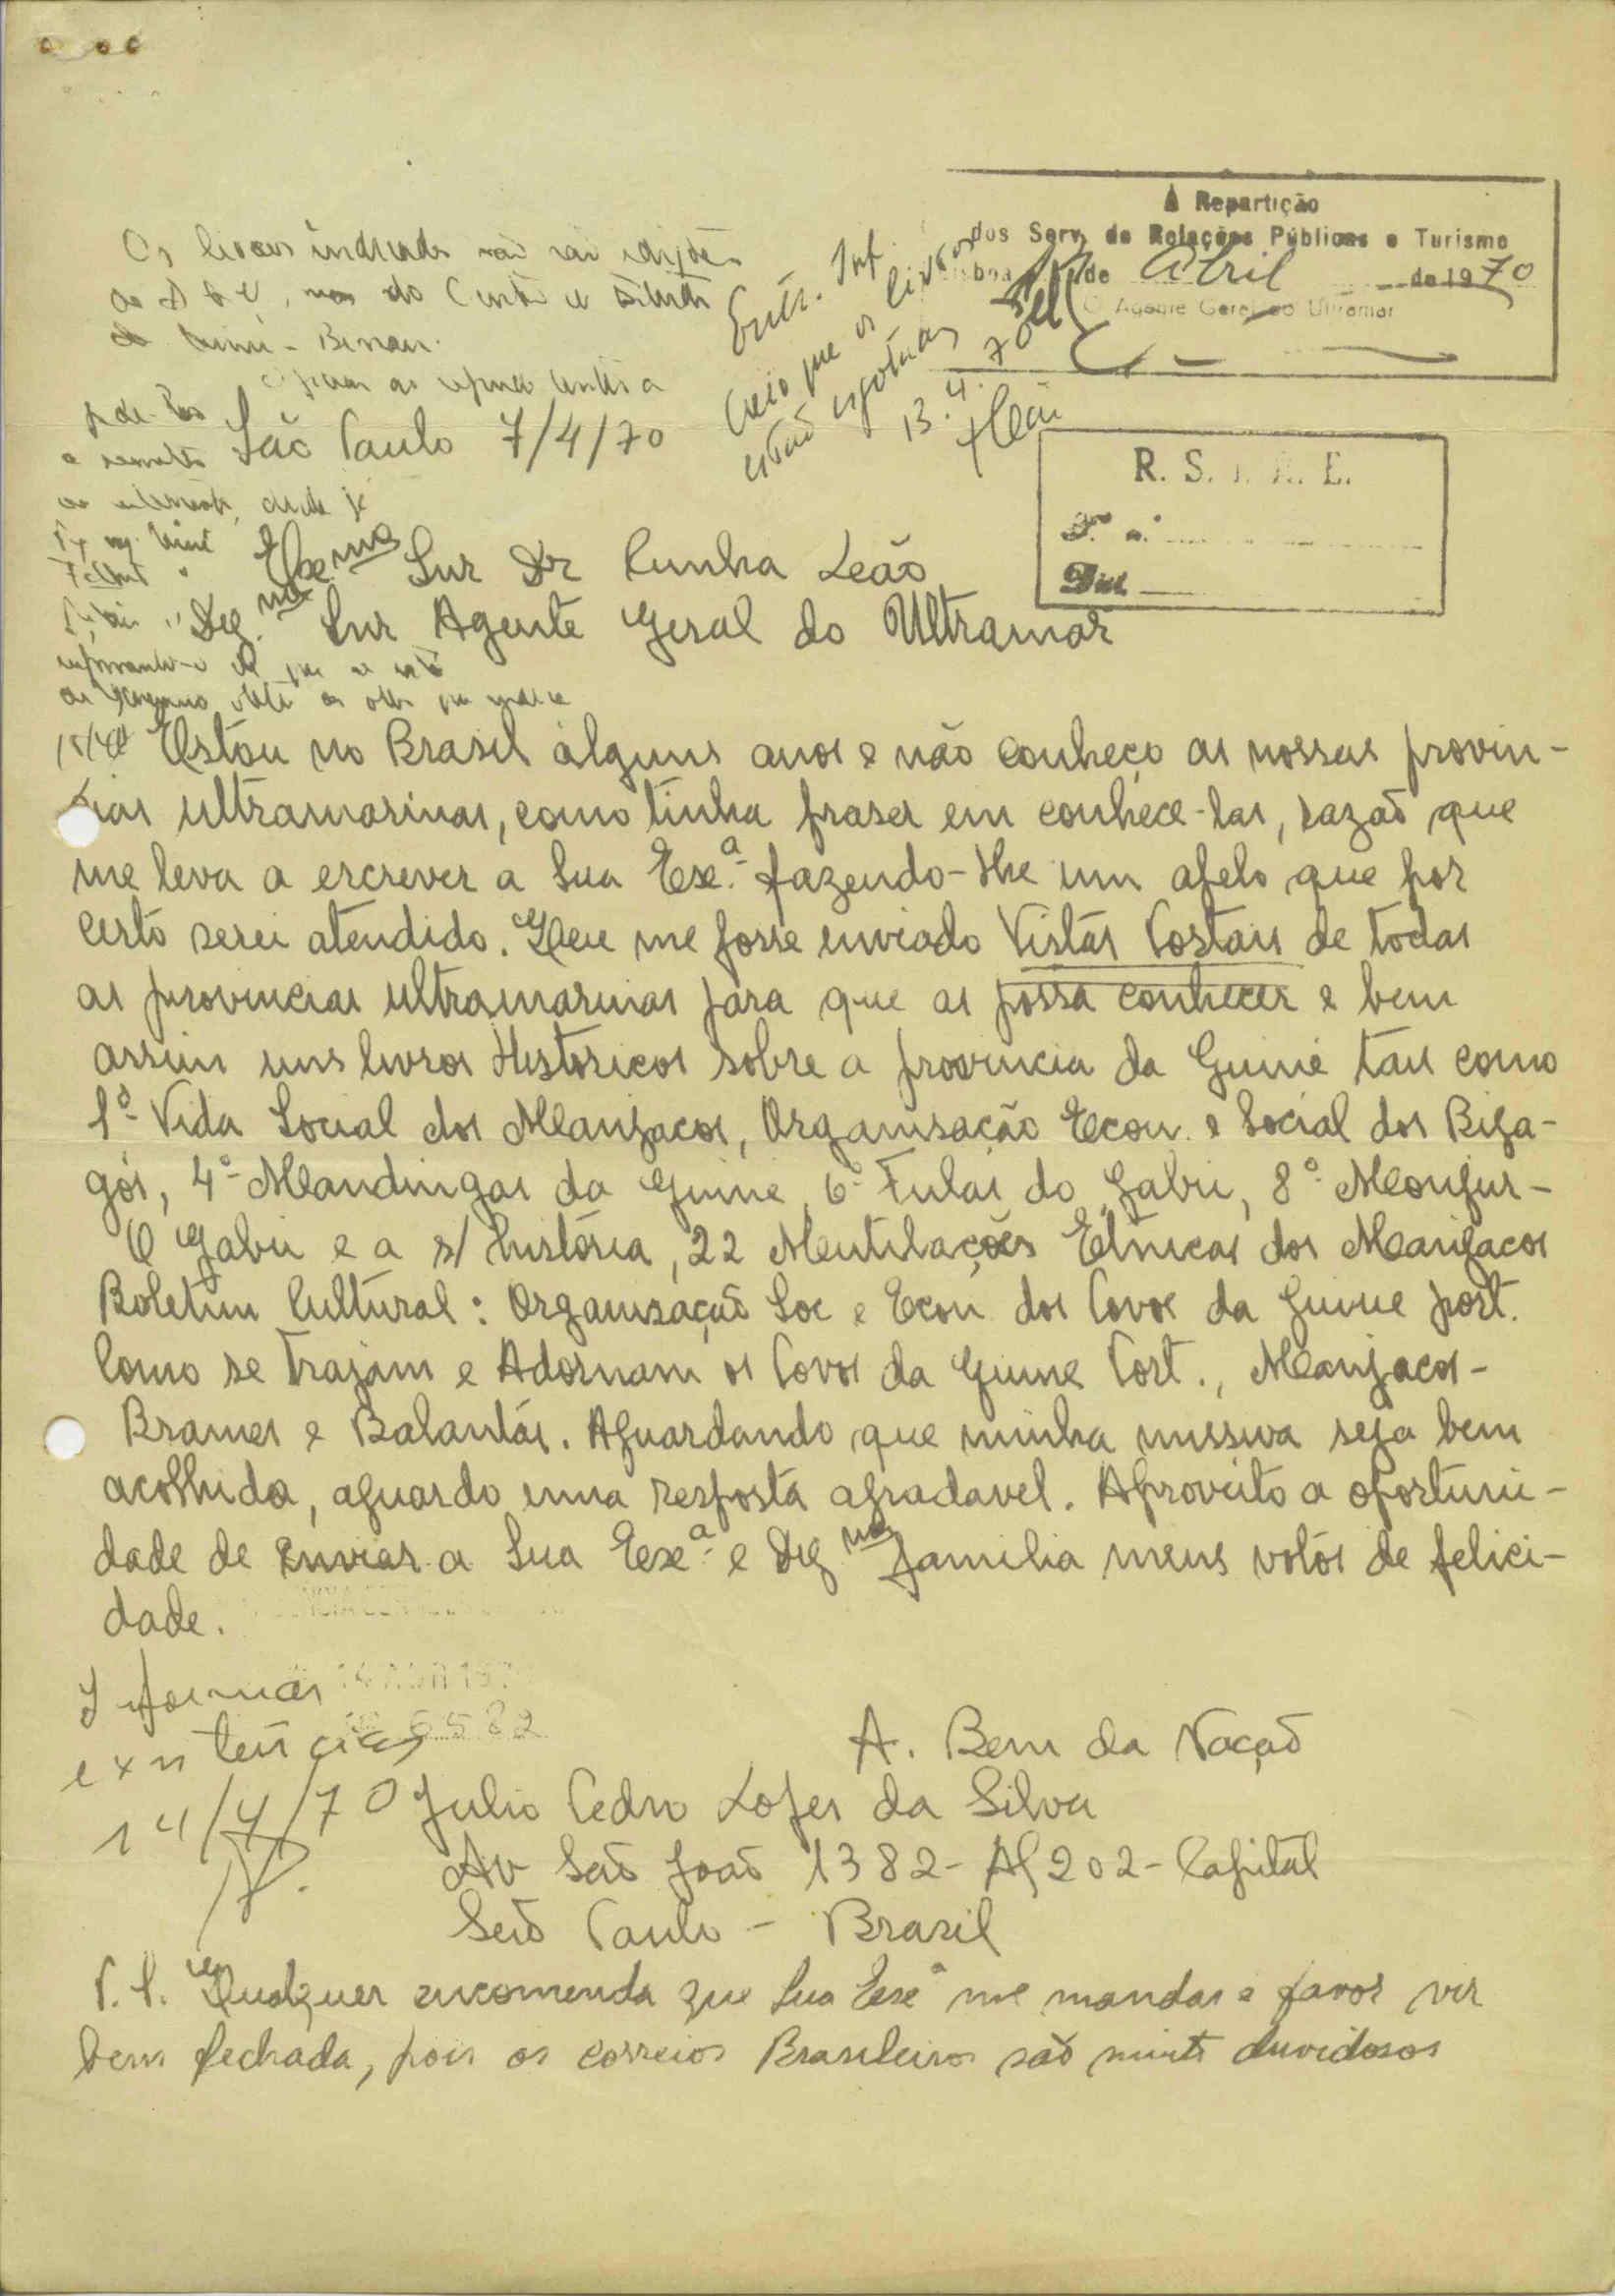 À Repartição
dos Serv. de Relações Públicas e Turismo
de Abril de 1970
O Agente Geral do Ultramar
Os livros indicados não são edições
da A G U, mas do Centro de Estudos
da Guiné - Bissau.
Entr. Inf.
Creio que os livros
estão esgotados
13.4.70
R. S.
São Paulo 7/4/70
Exe.mo Snr Dr Cunha Leão
Dig.mo Snr Agente Geral do Ultramar
Estou no Brasil alguns anos e não conheço as nossas provin-
cias ultramarinas, como tinha praser em conhece-las, razaõ que
me leva a escrever a Sua Exe.ª fazendo-lhe um apelo que por
certo serei atendido. Que me fosse enviado Vistas Postais de todas
as provincias ultramarinas para que as possa conhecer e bem
assim uns livros Historicos sobre a provincia da Guiné tais como
1º Vida Social dos Manjacos, Organisação Econ. e Social dos Bija-
gós, 4º Mandingas da Guine, 6º Fulas do Gabu, 8º Monjur-
O Gabu e a s/ história, 22 Mentilações Etnicas dos Manjacos
Boletim Cultural: Organisaçaõ Soc e Econ dos Povos da Guine port.
Como se Trajam e Adornam os Povos da Guine Port., Manjacos-
Brames e Balantás. Aguardando que minha missiva seja bem
acolhida, aguardo uma resposta agradavel. Aproveito a oportuni-
dade de enviar a Sua Exe.ª e Dig.ma familia meus votos de felici-
dade.
Informar
existências
14/4/70
5582
A. Bem da Naçaõ
Julio Pedro Lopes da Silva
Av Saõ Joaõ 1382 - Ap 202 - Capital
Saõ Paulo - Brasil
P.S. Qualquer encomenda que Sua Exeª me mandar e favor vir
bem fechada, pois os correios Brasileiros saõ muito duvidosos